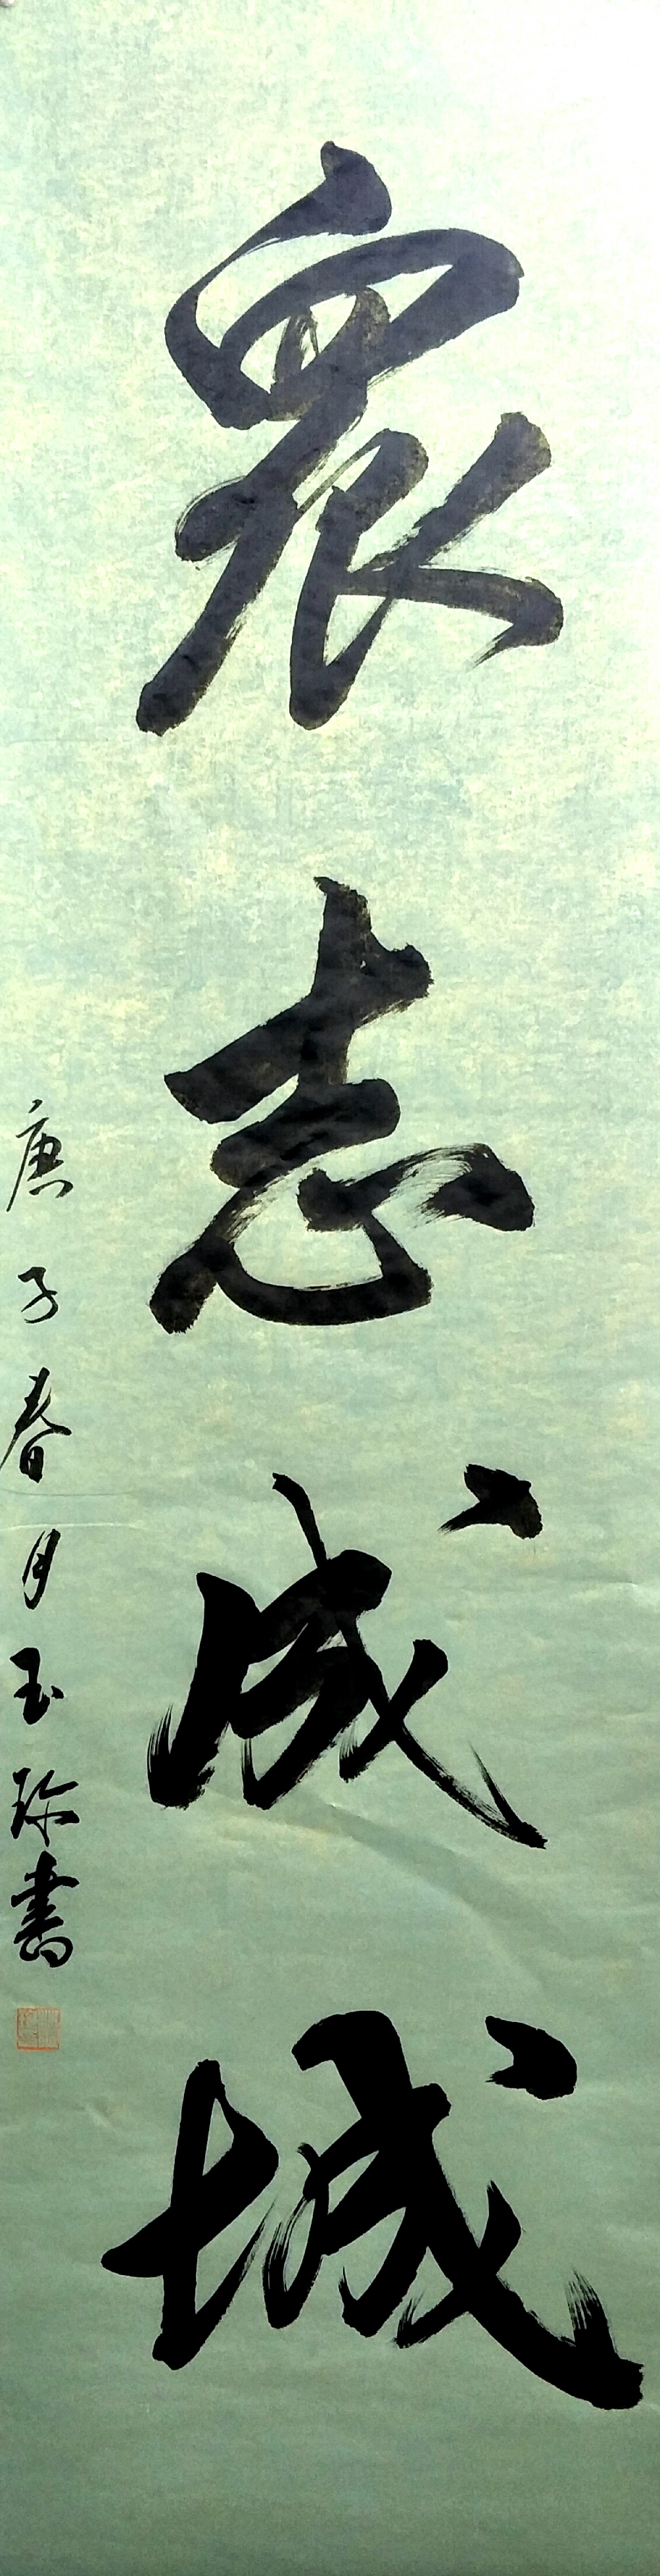 眾志成城
庚子春月玉珍書